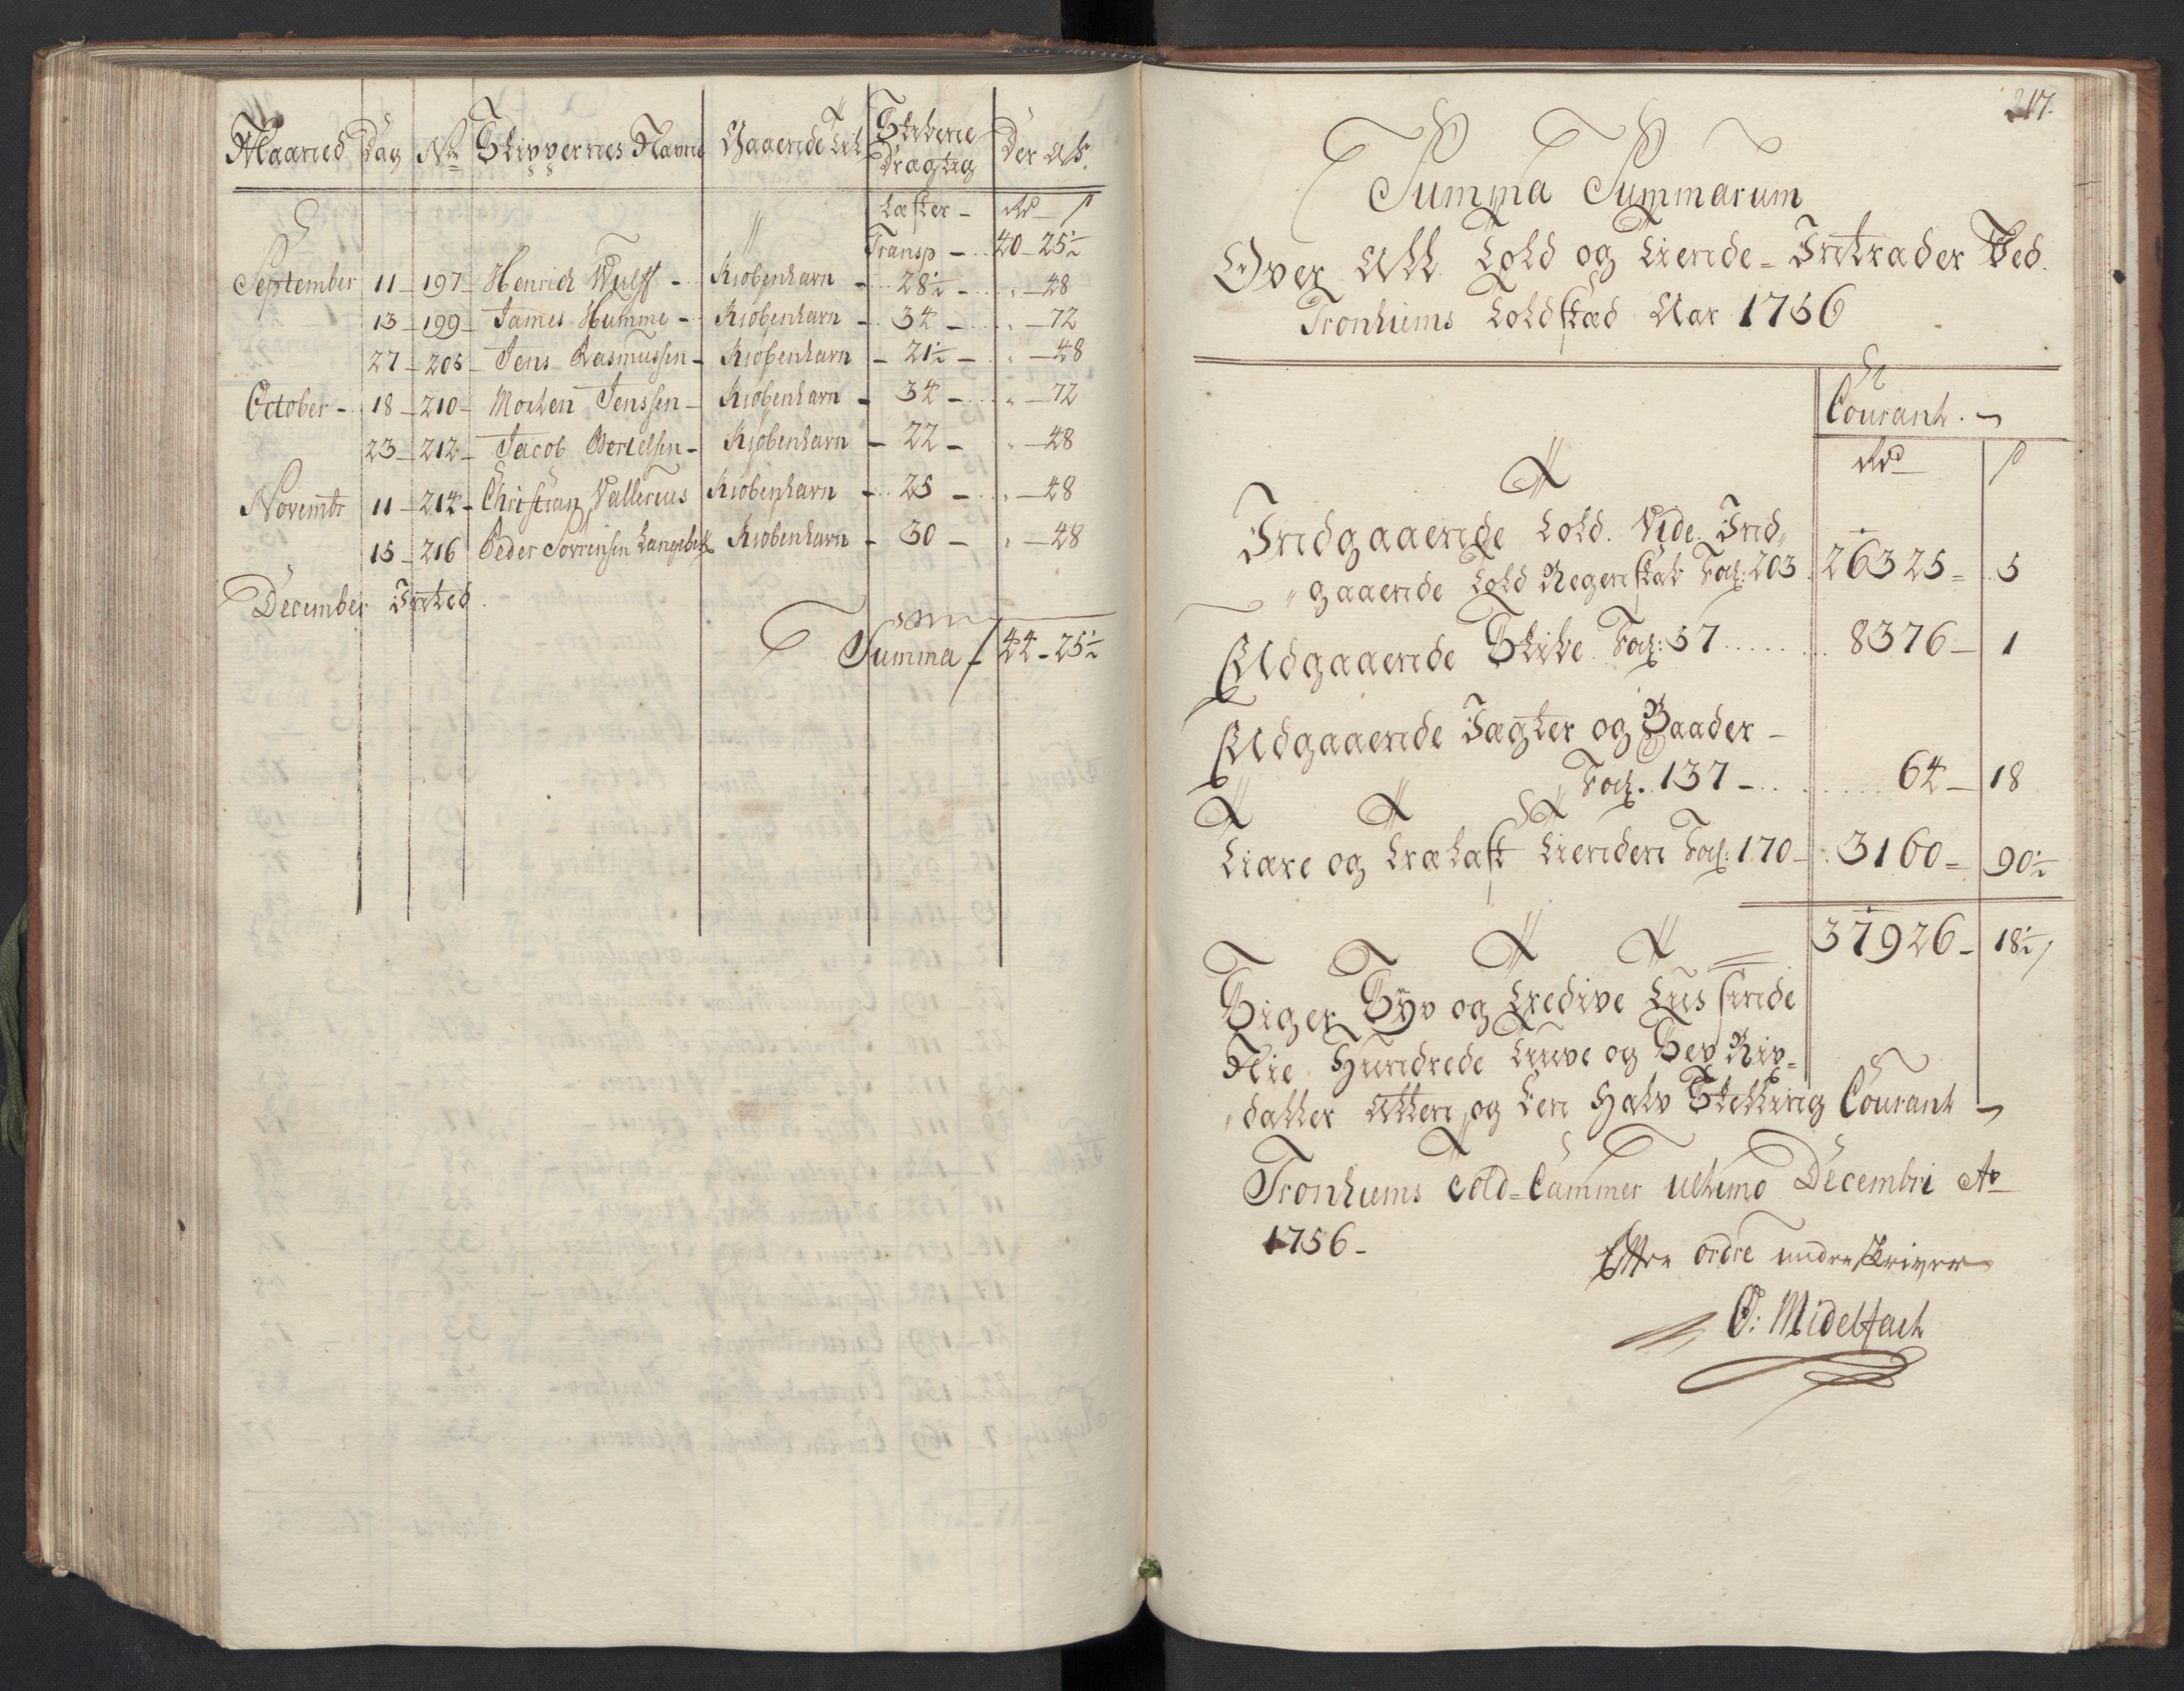 Maaned Dag No Skippernes Navne Gaaende til Skibene Dragtig Der Af.
Læster - Rd ß
Transp - 40 - 25½
September 11 - 197 - Henrich Wulff - Kiøbenhavn - 28½ - " - 48
13 - 199 - James Humme - Kiøbenhavn - 34 - " - 72
27 - 205 - Jens Rasmussen - Kiøbenhavn - 21½ - " - 48
October - 18 - 210 - Morten Jenssen - Kiøbenhavn - 34 - " - 72
23 - 212 - Jacob Bertelsen - Kiøbenhavn - 22 - " - 48
Novembr 11 - 214 - Christian Vallerius Kiøbenhavn - 25 - " - 48
15 - 216 Peder Sørrensen Langebek Kiøbenhavn - 30 - " - 48
December Inted.
Summa - 44 - 25½
217.
Summa Summarum
Over All Told og Tiende-Intrader Ved
Tronhiems Toldsted Aar 1756
Courant.
Rd ß
Indgaaende Told. Vide Ind,,
,,gaaende Told Regenskab Fol: 203. 26325 = 5
Udgaaende Skibe Fol: 57 8376 - 1
Udgaaende Jægter og Baader -
Fol. 137 - 64 - 18
Tiære og Trælast Tienden Fol: 170 - 3160 = 90½
37926 - 18½
Siger Syv og Tredive Tussinde
Nie Hundrede Tiuve og Sex Rix-
,,daller Atten og Een Halv Skilling Courant
Tronhiems Told-Cammer ultimo Decembri Ao
1756 -
Efter ordre underskriver
O: Midelfart